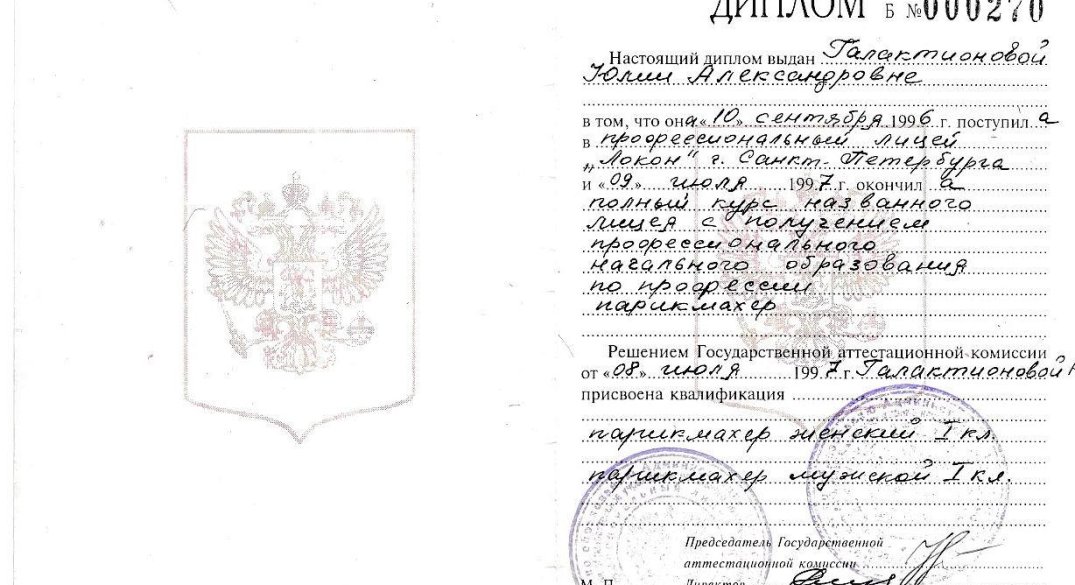 ДИПЛОМ Б №000270
Настоящий диплом выдан Галактионовой
Юлии Александровне
в том, что она «10» сентября 1996 г. поступила
в профессиональный лицей
„Локон" г. Санкт-Петербурга
и «09» июля 1997 г. окончила
полный курс названного
лицея с получением
профессионального
начального образования
по профессии
парикмахер
Решением Государственной аттестационной комиссии
от «08» июля 1997 г. Галактионовой
присвоена квалификация
парикмахер женский I кл.
парикмахер мужской I кл.
Председатель Государственной
аттестационной комиссии
М. П. Директор